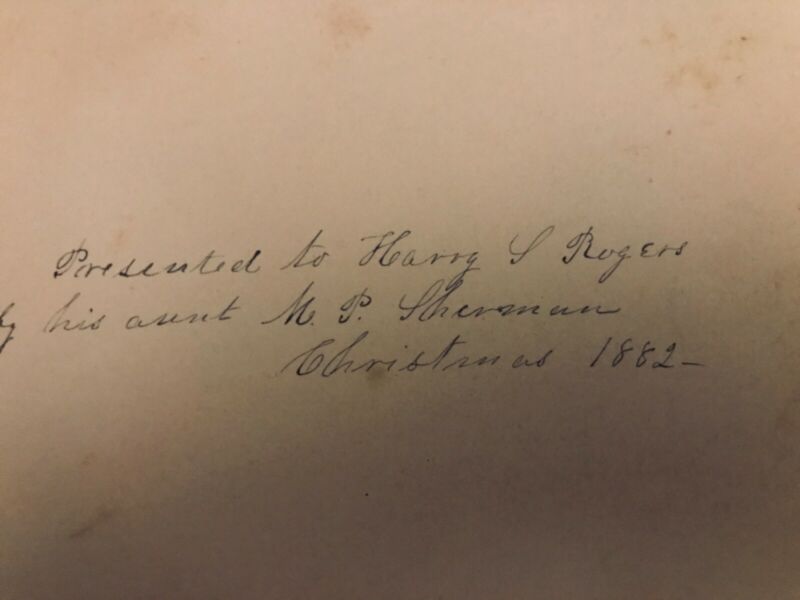 Presented to Harry S Rogers
by his aunt M. P. Sherman
Christmas 1882-